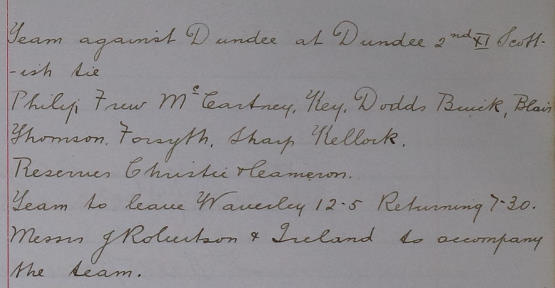 Team against Dundee at Dundee 2nd XI Scott-
-ish tie
Philip, Frew McCartney, Key, Dodds Buick, Blair
Thomson, Forsyth, Sharp Kellock.
Reserves Christie & Cameron.
Team to leave Waverley 12-5 Returning 7-30.
Messrs J Robertson & Ireland to accompany
the team.